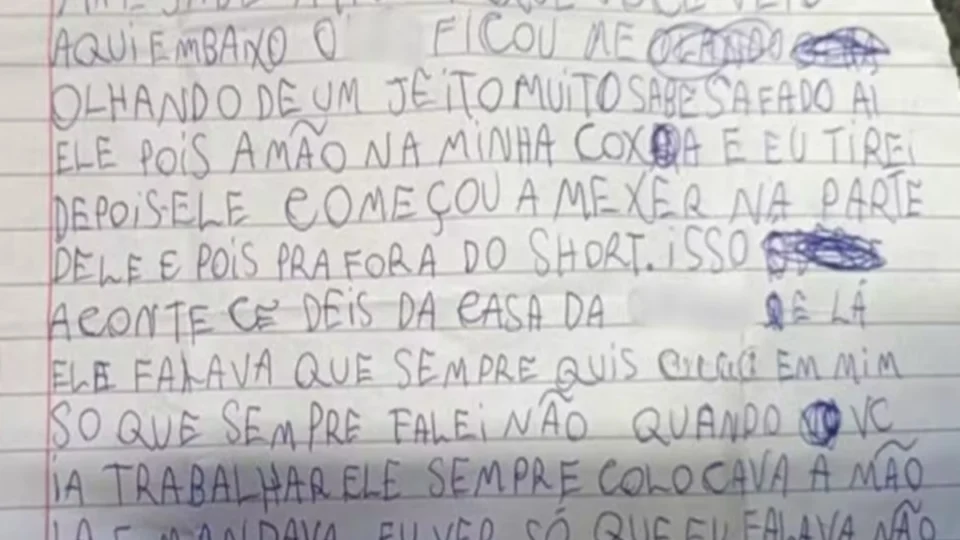 AQUI EMBAIXO O FICOU ME
OLHANDO DE UM JEITO MUITO SABE SAFADO AI
ELE POIS A MÃO NA MINHA COXA E EU TIREI
DEPOIS ELE COMEÇOU A MEXER NA PARTE
DELE E POIS PRA FORA DO SHORT. ISSO
ACONTE CE DEIS DA CASA DA E LÁ
ELE FALAVA QUE SEMPRE QUIS EM MIM
SO QUE SEMPRE FALEI NÃO QUANDO VC
IA TRABALHAR ELE SEMPRE COLOCAVA A MÃO
LA E MANDAVA EU VER SÓ QUE EU FALAVA NÃO